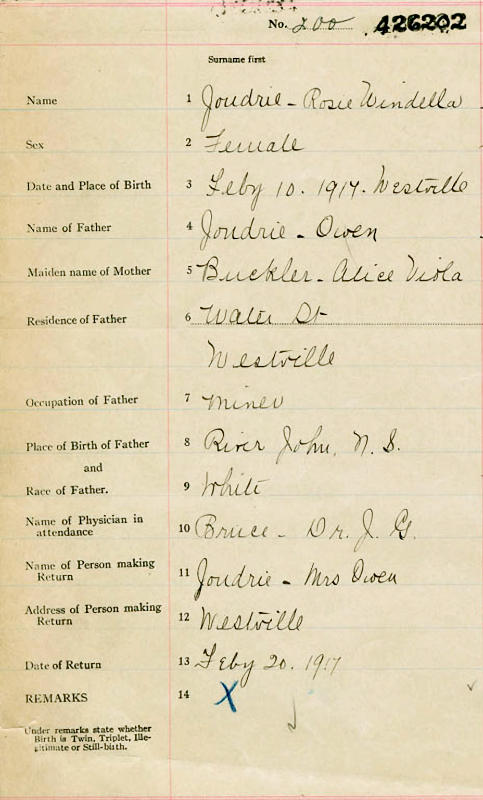 No. 200 426202
Surname first
Name 1 Joudrie - Rosie Windella
Sex 2 Female
Date and Place of Birth 3 Feby 10. 1917. Westville
Name of Father 4 Joudrie - Owen
Maiden name of Mother 5 Buckler - Alice Viola
Residence of Father 6 Water St
Westville
Occupation of Father 7 Miner
Place of Birth of Father 8 River John, N. S.
and
Race of Father. 9 White
Name of Physician in attendance 10 Bruce - Dr. J. G.
Name of Person making Return 11 Joudrie - Mrs Owen
Address of Person making Return 12 Westville
Date of Return 13 Feby 20. 1917
REMARKS 14 X
Under remarks state whether
Birth is Twin, Triplet, Ille-
gitimate or Still-birth.